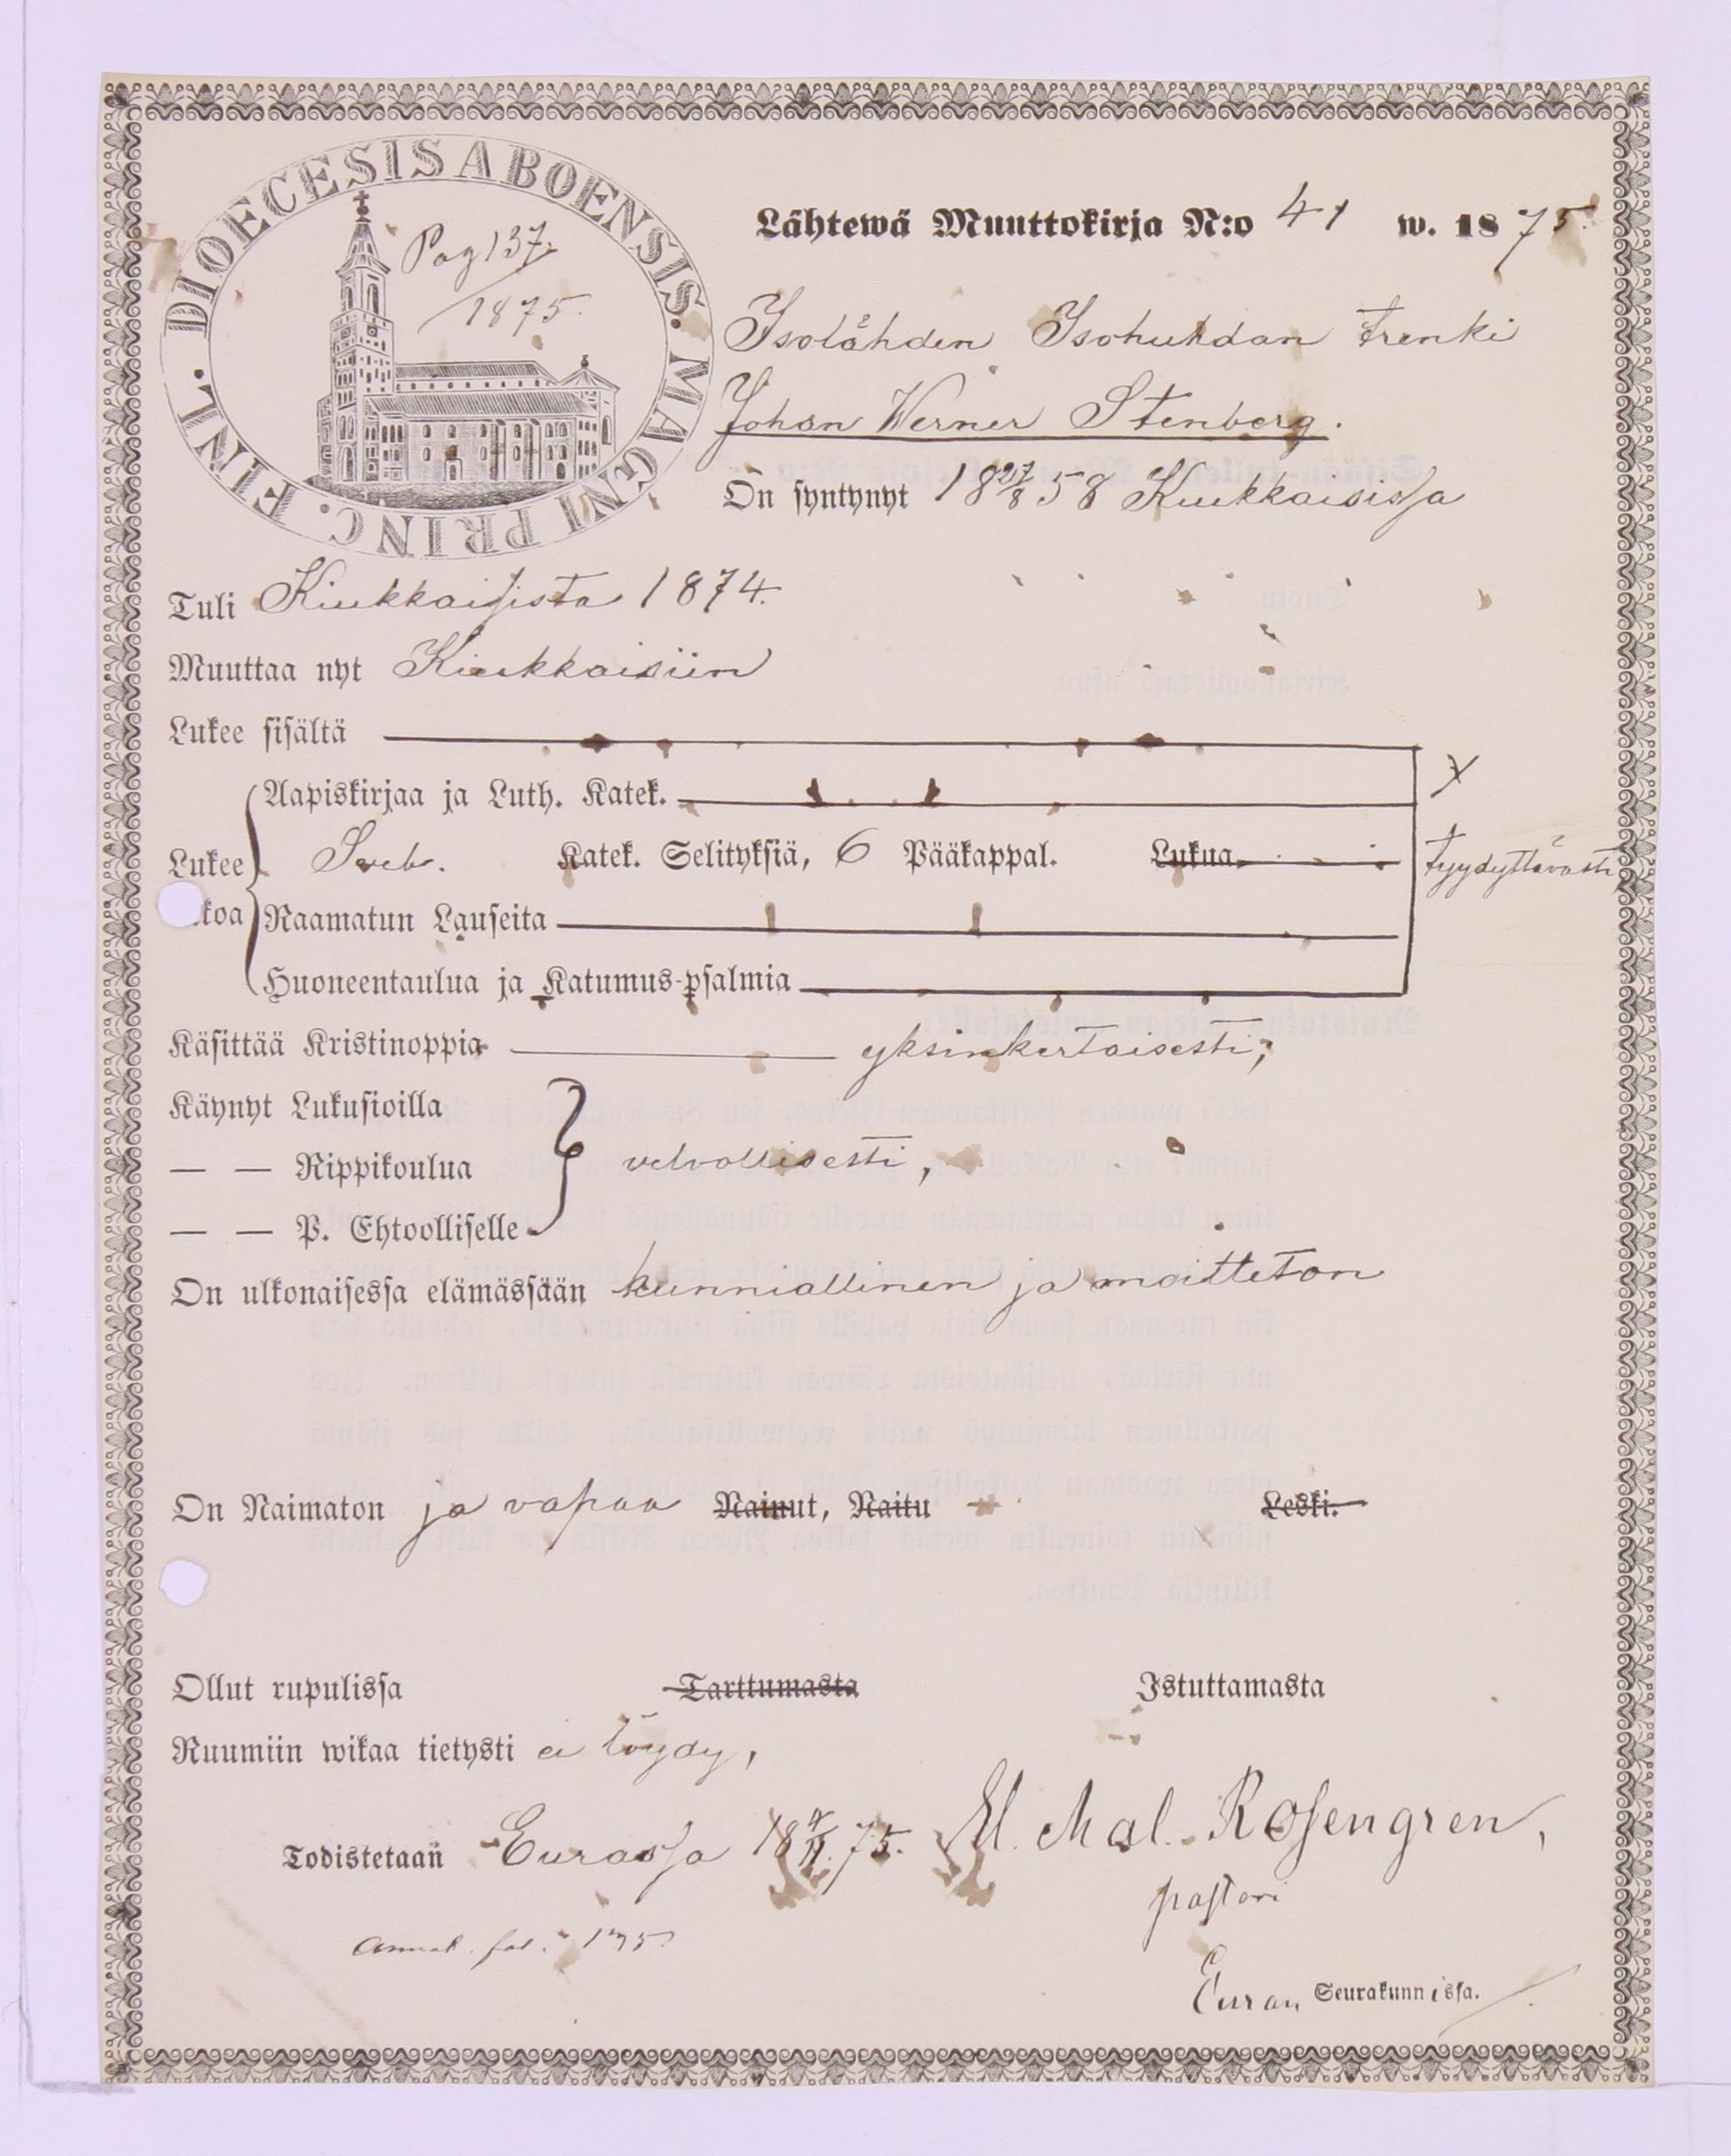 DIOECESIS ABOENSIS. MAGNI PRINC. FINL.
Pag 137.
1875.
Lähtewä Muuttokirja N:o 41 w. 1875.
Isolåhden Isohuhdan trenki
Johan Werner Stenberg.
On syntynyt 18 27/8 58 Kiukkaisissa
Tuli Kiukkaisista 1874.
Muuttaa nyt Kiukkaisiin
Lukee sisältä
Aapiskirjaa ja Luth. Katek.
Lukee Sveb. Katek. Selityksiä, 6 Pääkappal. Lukua tyydyttävästi
koa Raamatun Lauseita
Huoneentaulua ja Katumus-psalmia
Käsittää Kristinoppia yksinkertaisesti,
Käynyt Lukusioilla
— — Rippikoulua velvollisesti,
— — P. Ehtoolliselle
On ulkonaisessa elämässään kunniallinen ja moitteton
On Naimaton ja vapaa Nainut, Naitu Leski.
Ollut rupulissa Tarttumasta Istuttamasta
Ruumiin wikaa tietysti ei löydy,
Todistetaan Eurassa 75. Mal. Rosengren,
pastori
Euran Seurakunnissa.